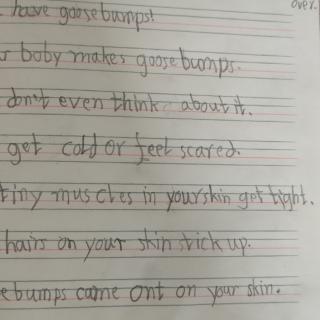 over.
have goosebumps!
r boby makes goosebumps.
don't even think about it.
get cold or feel scared.
tiny muscles in yourskin get tight.
hairs on your skin stick up.
ebumps came ont on your skin.